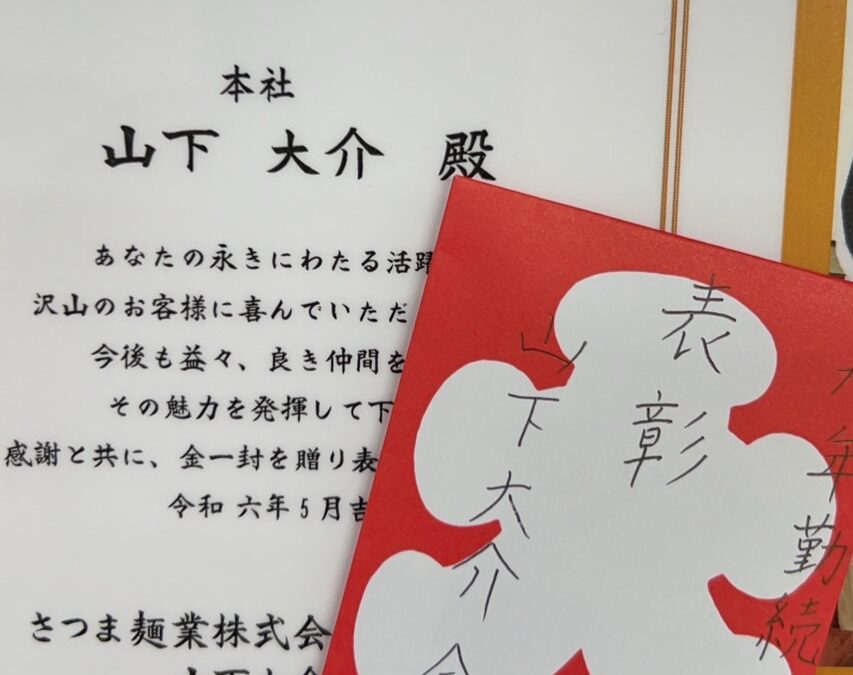 本社
山下 大介 殿
あなたの永きにわたる活躍
沢山のお客様に喜んでいただ
今後も益々、良き仲間を
その魅力を発揮して下
感謝と共に、金一封を贈り表
令和 六年5月吉
さつま麺業株式会
年勤続
表彰
山下大介